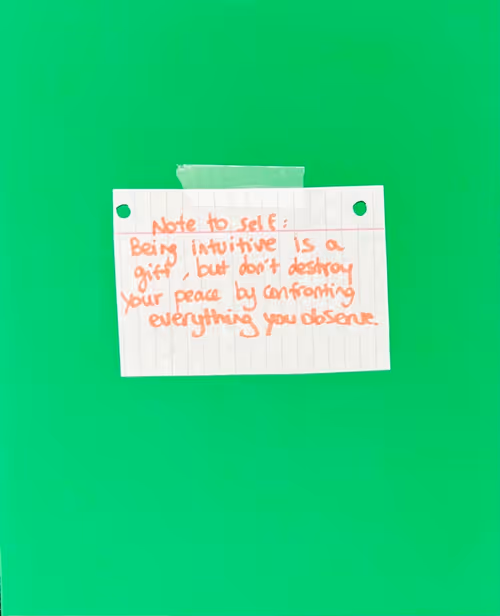 Note to self:
Being intuitive is a
gift, but don't destroy
your peace by confronting
everything you observe.